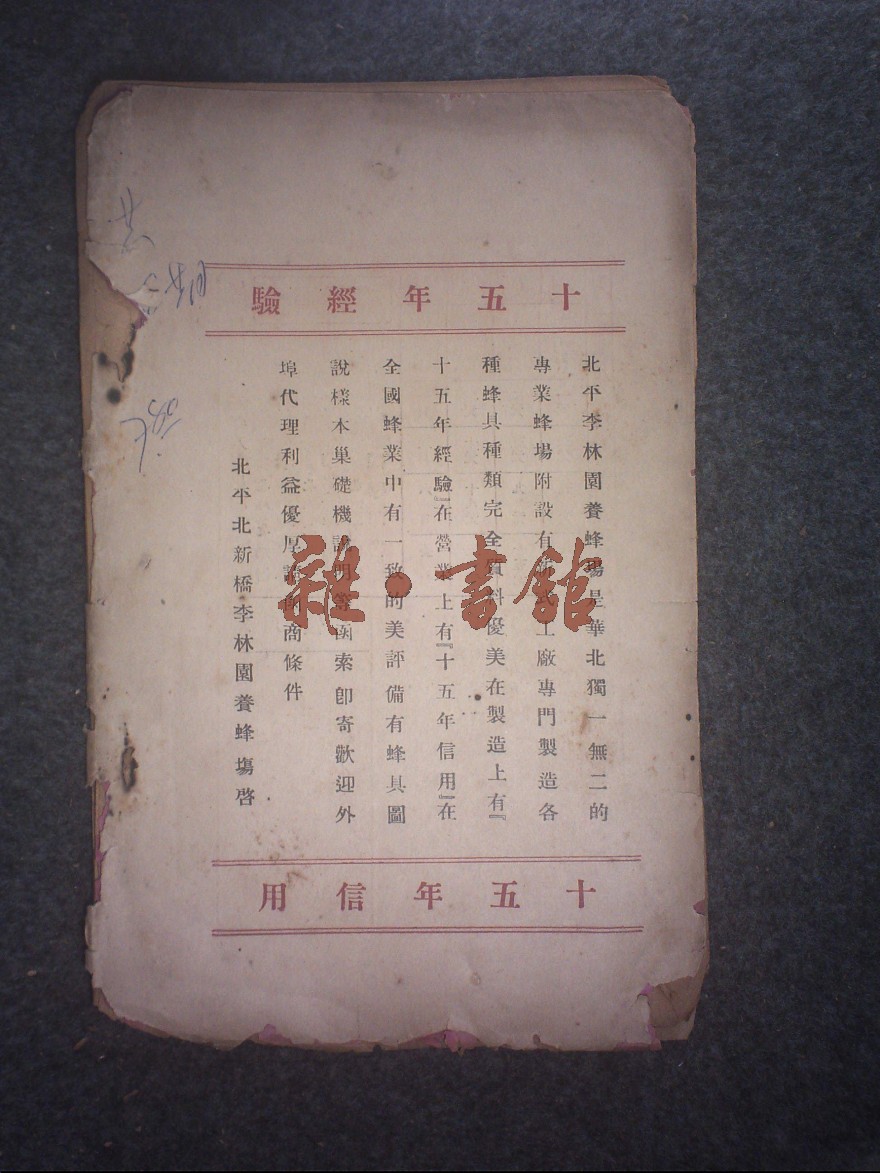 十五年經驗
北平李林園養蜂場是華北獨一無二的
專業蜂場附設有新式工廠專門製造各
種蜂具種類完全質料優美在製造上有『
十五年經驗』在營業上有『十五年信用』在
全國蜂業中有一致的美評備有蜂具圖
說樣本巢礎機說明等函索卽寄歡迎外
埠代理利益優厚請函商條件
北平北新橋李林園養蜂場啓
十五年信用
雜·書館